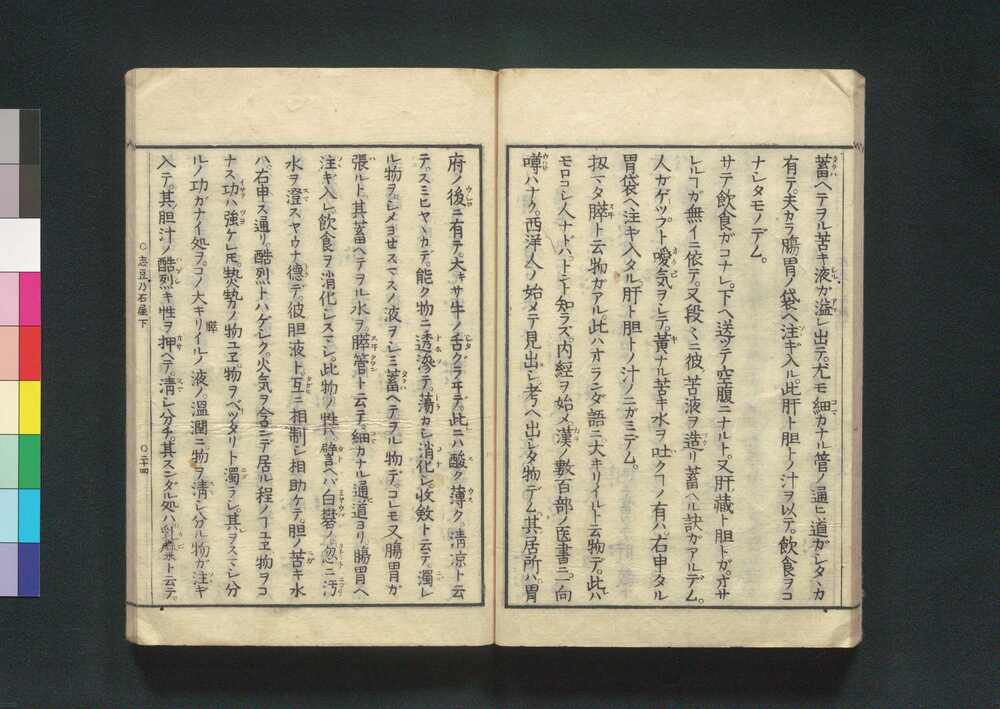 蓄ヘテヲル苦キ液ガ溢レ出テ。尤モ細カナル管ノ通ヒ道ガシタヽカ
有テ。夫カラ腸胃ノ袋ヘ注ギ入ル。此肝ト胆トノ汁ヲ以テ。飲食ヲコ
ナシタモノデム。
サテ飲食ガコナレ。下ヘ送ッテ空腹ニナルト。又肝蔵ト胆トガ。ホサ
レルヿガ無イニ依テ。又段々ニ彼苦液ヲ造リ蓄ヘル訣ガアルデム。
人ガゲップト噯気ヲシテ。黄ナル苦キ水ヲ吐クヿノ有ハ。右申タル
胃袋ヘ注ギ入タル。肝ト胆トノ汁ノニガミデム。
扨マタ膵ト云物ガアル。此ハオランダ語ニ。大キリイルト云物デ。此ハ
モロコシ人ナドハ。トント知ラズ。内経ヲ始メ。漢ノ数百部ノ医書ニ。一向
噂ハナク。西洋人ノ始メテ見出シ。考ヘ出シタ物デム。其居所ハ。胃
府ノ後ニ有テ。大キサ牛ノ舌クラヰデ。此ニハ酸ク薄ク。清涼ト云
テ。スミヒヤヽカデ。能ク物ニ透滲テ。蕩カシ消化シ。收斂ト云テ。濁レ
ル物ヲ。シメヨセスマスノ液ヲシミ蓄ヘテヲル物デ。コレモ又腸胃ガ
張ルト。其蓄ヘテヲル水ヲ。膵管ト云テ。細カナル通道ヨリ。腸胃ヘ
注ギ入レ飲食ヲ消化シスマシ。此物ノ性ハ。譬ヘバ。白礬ノ。忽ニ汚
水ヲ澄スヤウナ徳デ。彼胆液ト。互ニ相制シ相助ケテ。胆ノ苦キ水
ハ。右申ス通リ。酷烈トハゲシク。火気ヲ含ミテ居ル程ノヿユヱ。物ヲコ
ナス功ハ強ケレモ。熱勢ノ物ユヱ。物ヲベッタリト濁ラシ。其ヲスマシ分
ルノ功ガナイ処ヲ。コノ大キリイルノ液ノ。温潤ニ物ヲ清シ分ル物ガ注ギ
膵
入テ。其胆汁ノ酷烈キ性ヲ押ヘテ。清シ分チ。其スンダル処ハ
ト云テ。
○志豆乃石屋下
○二十四